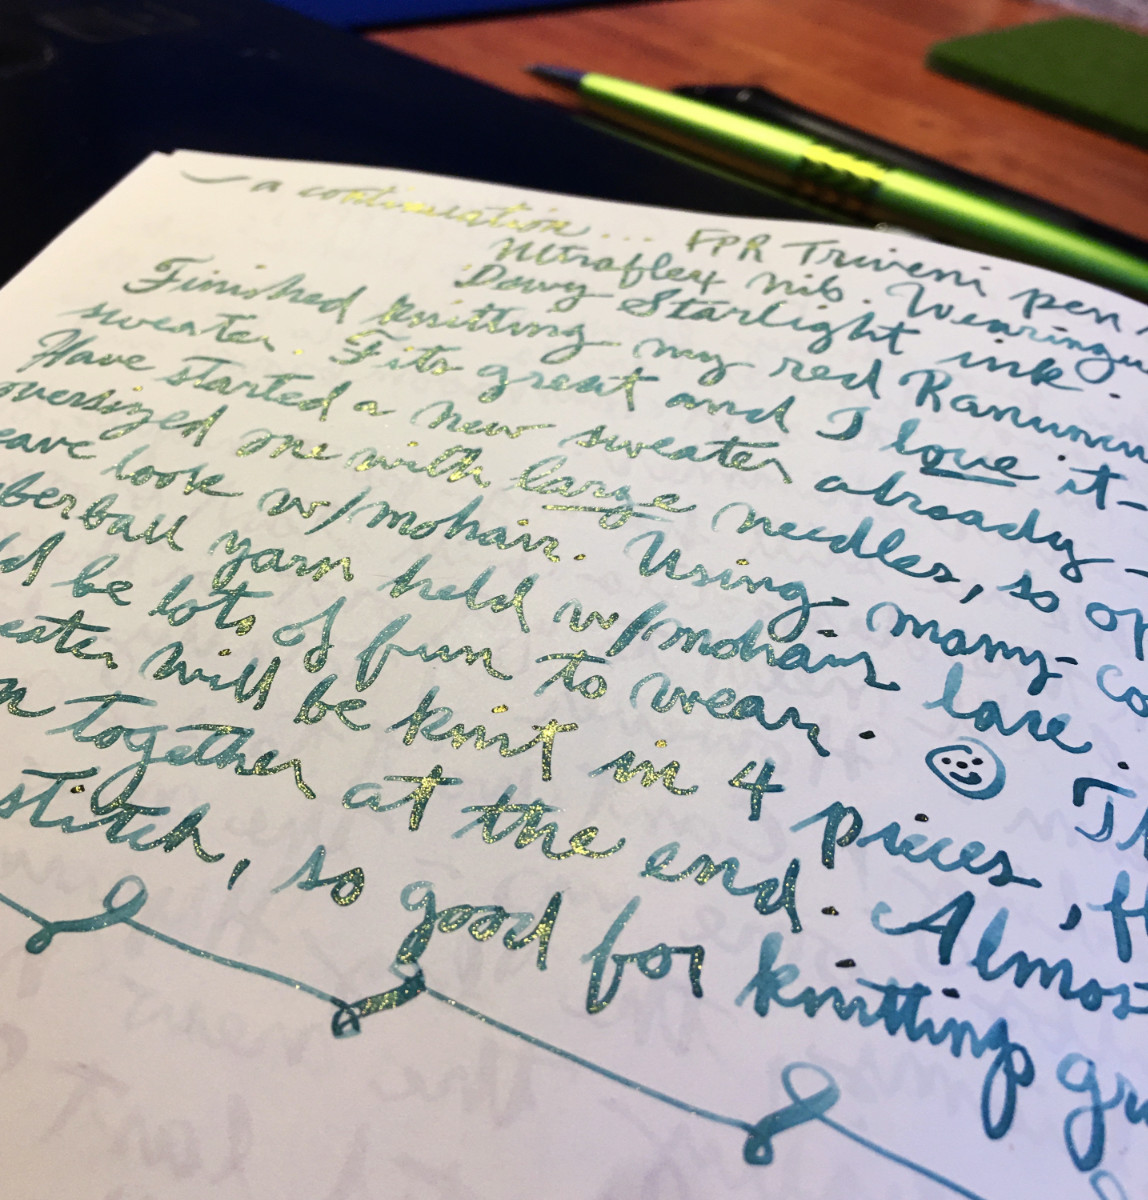 a continuation... FPR Triveni pen.
Ultraflex nib. Wearingeul
Dewy Starlight ink.
Finished knitting my red Ranuncu
sweater. Fits great and I love it-
Have started a new sweater already -
oversized one with large needles, so op
eave look w/mohair. Using many-co
berball yarn held w/mohair lace
ld be lots of fun to wear. Th
eater will be knit in 4 pieces, 
n together at the end. Almos
stitch, so good for knitting gr